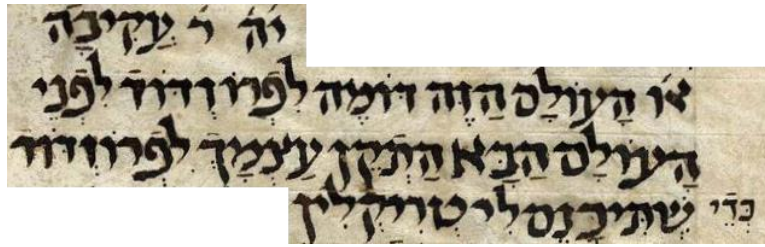 יׄהׄ רׄ עֲקִיבָה
אׄו הָעוֹלָם הַזֶּה דוֹמֶה לִפְרוֹזְדּוֹד לִפְנֵי
הָעוֹלָם הַבָּא הַתְקֵן עַצְמָךְ לִפְרוֹזְדוֹד
כְּדֵי שֶׁתִּיכָּנֵס לִי טְרִיקְלִין